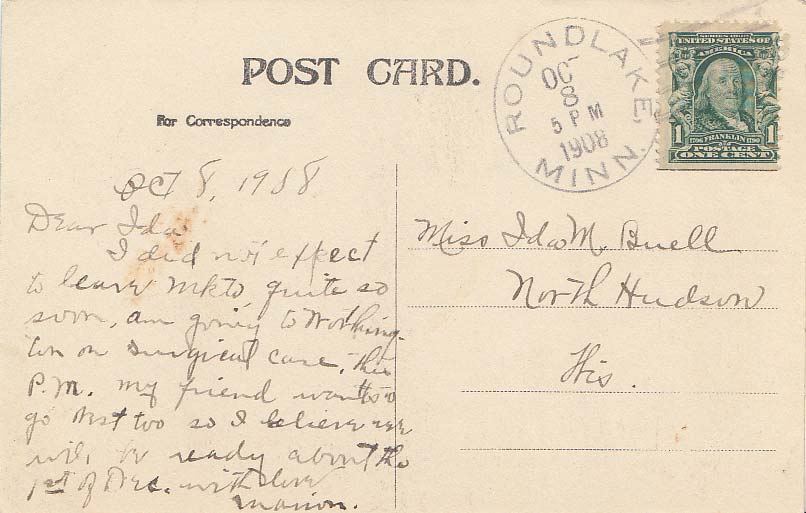 POST CARD.
For Correspondence
ROUNDLAKE, MINN.
OCT
8
5 PM
1908
SERIES 1902
UNITED STATES OF
AMERICA
1 1706 FRANKLIN 1790 1
POSTAGE
ONE CENT
Oct 8, 1908
Dear Ida
I did not expect
to leave Mkto, quite so
soon, am going to Worthing-
ton on surgical case, this
P.M. my friend wants to
go West too so I believe we
will be ready about the
1st of Dec. with love
Marion.
Miss Ida M. Buell
North Hudson
Wis.